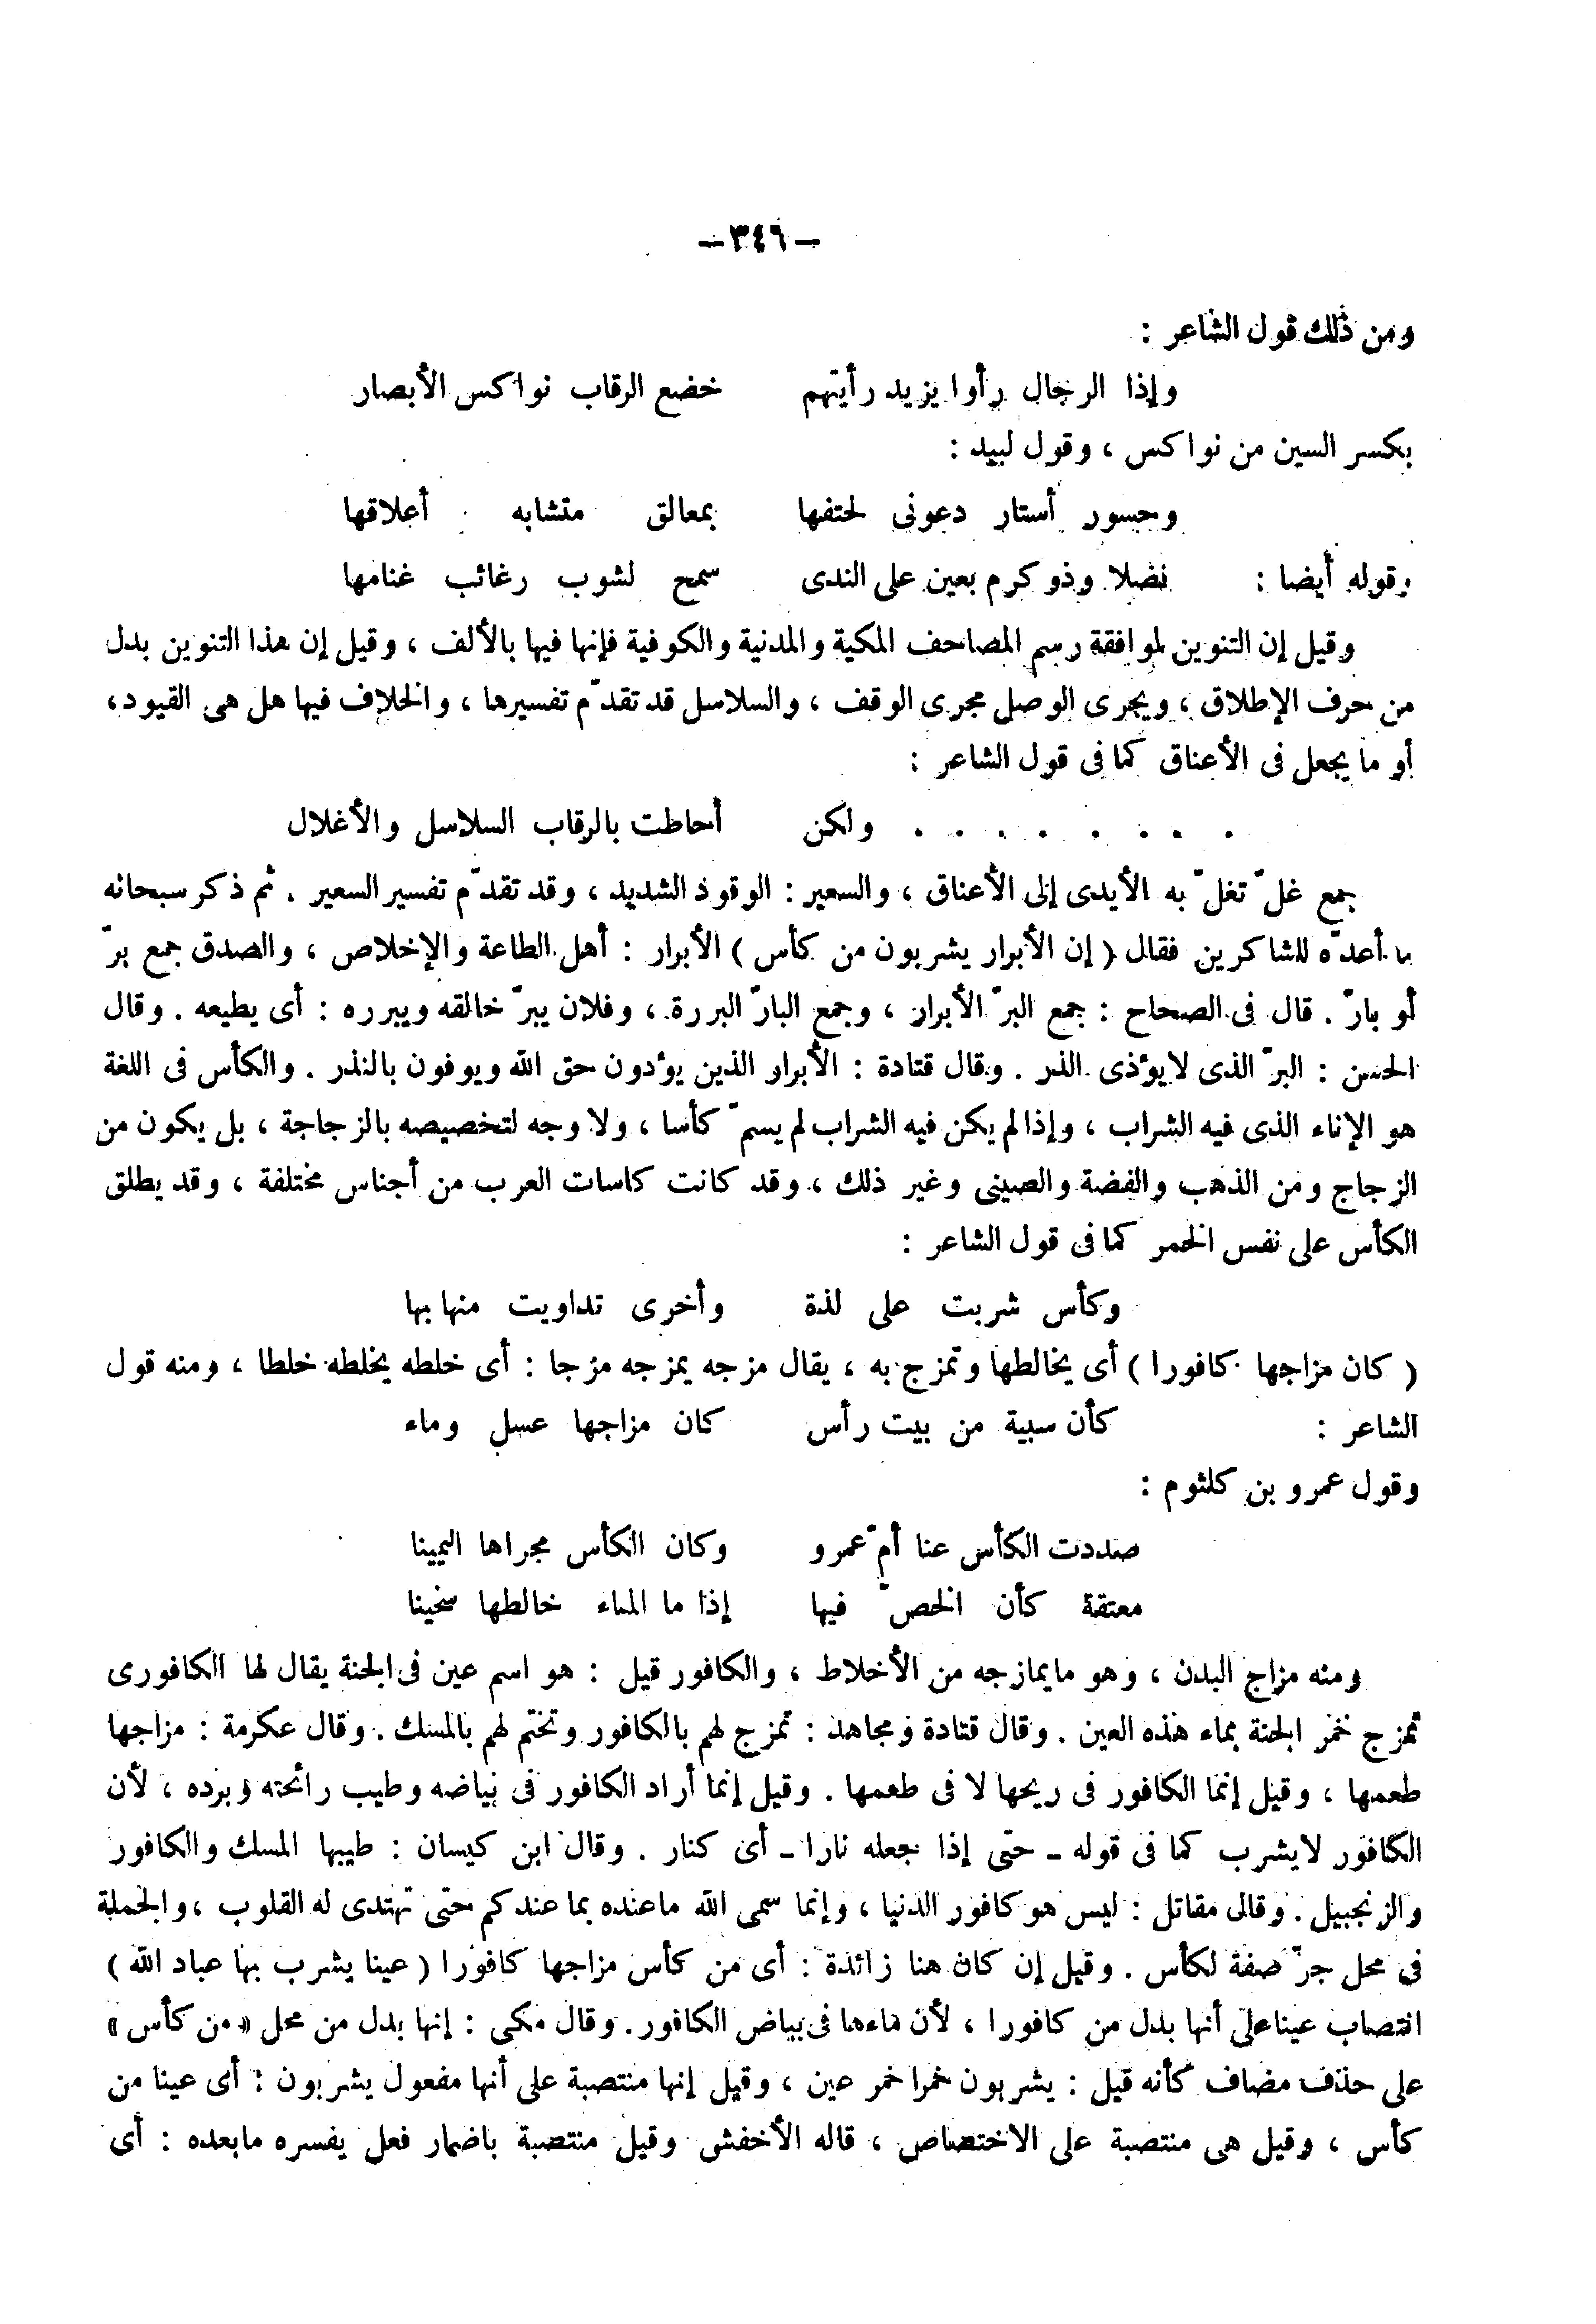 — ٣٤٦ —
ومن ذلك قول الشاعر :
وإذا الرجال رأوا يزيد رأيتهم خضع الرقاب نواكس الأبصار
بكسر السين من نواكس ، وقول لبيد :
وحسور أستار دعونى لحتفها بمعالق متشابه أعلاقها
وقوله أيضا : نضلا وذو كرم يعين على الندى سمح لشوب رغائب غنامها
وقيل إن التنوين لموافقة رسم المصاحف المكية والمدنية والكوفية فإنها فيها بالألف ، وقيل إن هذا التنوين بدل
من حرف الإطلاق ، ويجرى الوصل مجرى الوقف ، والسلاسل قد تقدّم تفسيرها ، والخلاف فيها هل هى القيود ،
أو ما يجعل فى الأعناق كما فى قول الشاعر :
. . . . . . . . ولكن أحاطت بالرقاب السلاسل والأغلال
جمع غلّ تغلّ به الأيدى إلى الأعناق ، والسعير : الوقود الشديد ، وقد تقدّم تفسير السعير . ثم ذكر سبحانه
ما أعدّه للشاكرين فقال ( إن الأبرار يشربون من كأس ) الأبرار : أهل الطاعة والإخلاص ، والصدق جمع برّ
أو بارّ . قال فى الصحاح : جمع البرّ الأبرار ، وجمع البارّ البررة ، وفلان يبرّ خالقه ويبرره : أى يطيعه . وقال
الحسن : البرّ الذى لا يؤذى الذر . وقال قتادة : الأبرار الذين يؤدون حق الله ويوفون بالنذر . والكأس فى اللغة
هو الإناء الذى فيه الشراب ، وإذا لم يكن فيه الشراب لم يسمّ كأسا ، ولا وجه لتخصيصه بالزجاجة ، بل يكون من
الزجاج ومن الذهب والفضة والصينى وغير ذلك ، وقد كانت كاسات العرب من أجناس مختلفة ، وقد يطلق
الكأس على نفس الخمر كما فى قول الشاعر :
وكأس شربت على لذة وأخرى تداويت منها بها
( كان مزاجها كافورا ) أى يخالطها وتمزج به ، يقال مزجه يمزجه مزجا : أى خلطه يخلطه خلطا ، ومنه قول
الشاعر : كأن سبية من بيت رأس كان مزاجها عسل وماء
وقول عمرو بن كلثوم :
صددت الكأس عنا أمّ عمرو وكان الكأس مجراها اليمينا
معتقة كأن الخصّ فيها إذا ما الماء خالطها سخينا
ومنه مزاج البدن ، وهو مايمازجه من الأخلاط ، والكافور قيل : هو اسم عين فى الجنة يقال لها الكافورى
تمزج خمر الجنة بماء هذه العين . وقال قتادة ومجاهد : تمزج لهم بالكافور وتختم لهم بالمسك . وقال عكرمة : مزاجها
طعمها ، وقيل إنما الكافور فى ريحها لا فى طعمها . وقيل إنما أراد الكافور فى بياضه وطيب رائحته وبرده ، لأن
الكافور لايشرب كما فى قوله - حتى إذا جعله نارا - أى كنار . وقال ابن كيسان : طيبها المسك والكافور
والزنجبيل . وقال مقاتل : ليس هو كافور الدنيا ، وإنما سمى الله ماعنده بما عندكم حتى تهتدى له القلوب ، والجملة
فى محل جرّ صفة لكأس . وقيل إن كان هنا زائدة : أى من كأس مزاجها كافورا ( عينا يشرب بها عباد الله )
انتصاب عينا على أنها بدل من كافورا ، لأن ماءها فى بياض الكافور . وقال مكى : إنها بدل من محل « من كأس »
على حذف مضاف كأنه قيل : يشربون خمرا خمر عين ، وقيل إنها منتصبة على أنها مفعول يشربون : أى عينا من
كأس ، وقيل هى منتصبة على الاختصاص ، قاله الأخفش وقيل منتصبة باضمار فعل يفسره مابعده : أى